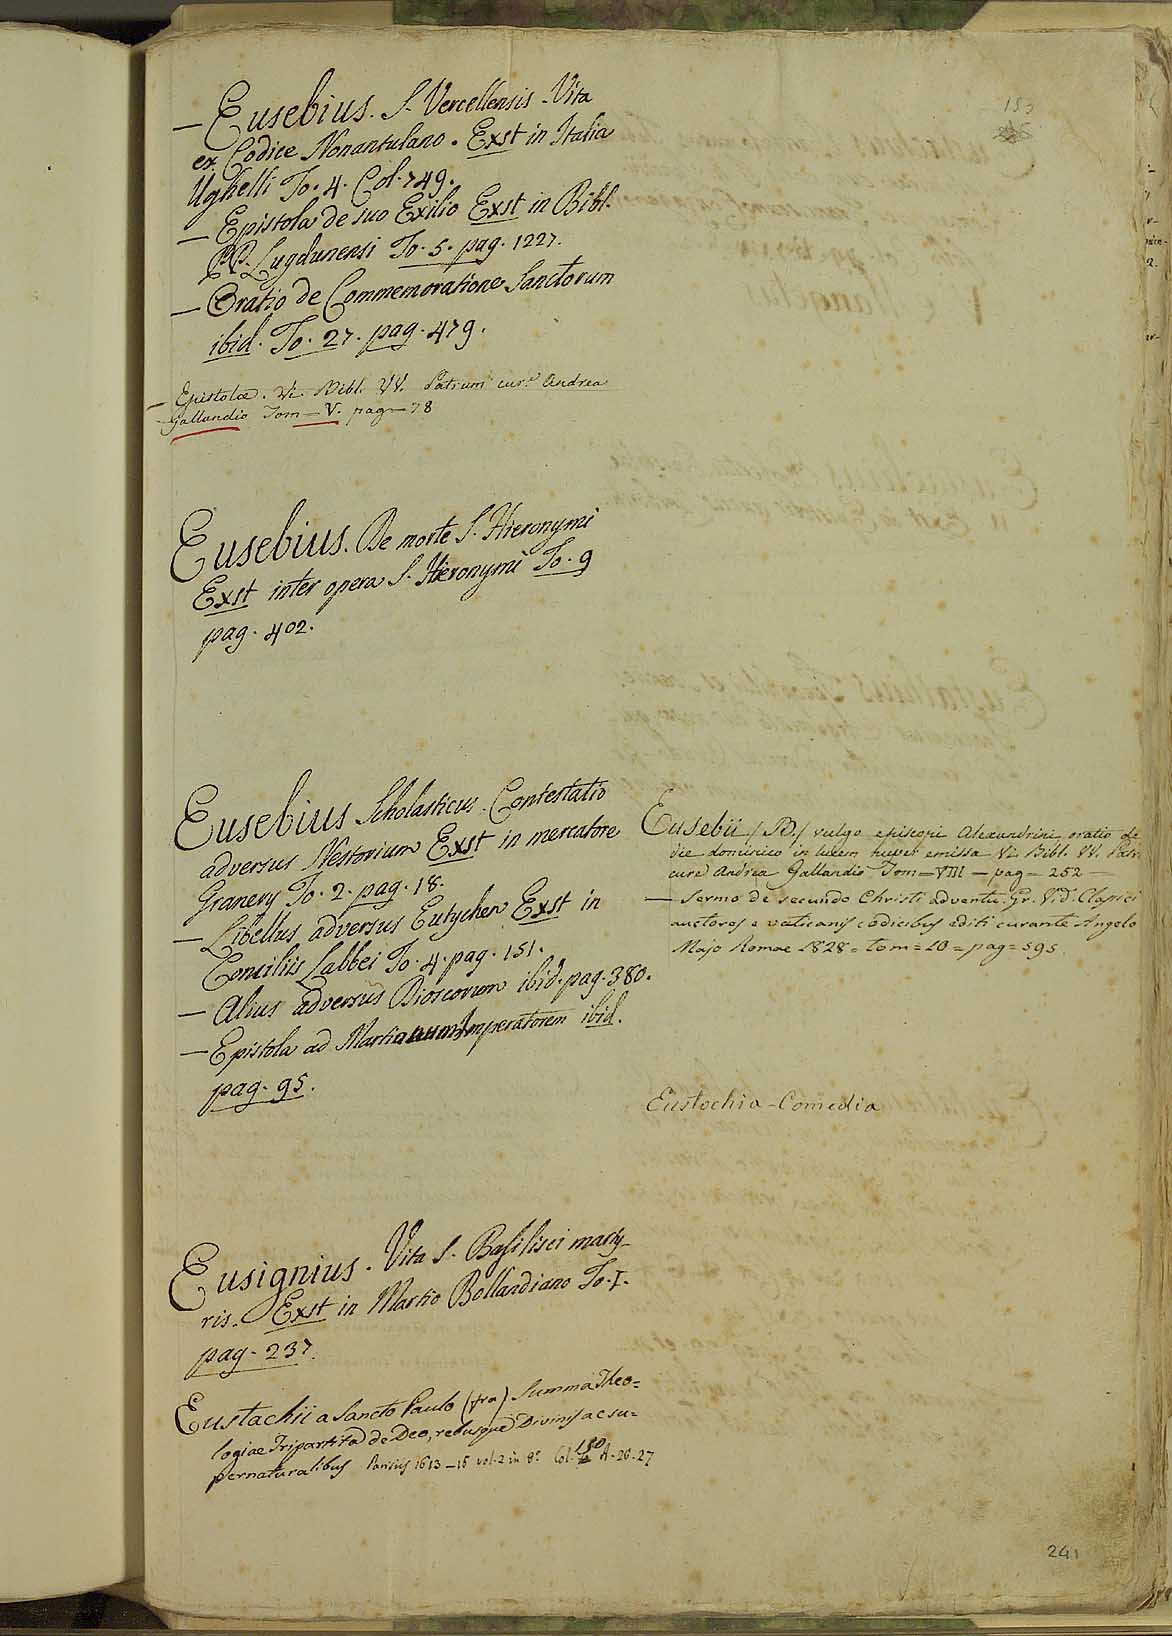 153
— Eusebius. S. Vercellensis. Vita
ex Codice Nonantulano. Exst in Italia
Ughelli To. 4. Col. 749.
— Epistola de suo Exilio Exst in Bibl.
PP. Lugdunensi To. 5. pag. 1227.
— Oratio de Commemoratione Sanctorum
ibid. To. 27. pag. 479.
— Epistolæ. Vi. Bibl. VV. Patrum cur.e Andrea
Gallandio Tom = V. pag = 78
Eusebius. De morte S. Hieronymi
Exst inter opera S. Hieronymi To. 9
pag. 402.
Eusebius Scholasticus. Contestatio
adversus Nestorium Exst in mercatore
Granery To. 2. pag. 18.
— Libellus adversus Eutychen Exst in
Conciliis Labbei To. 4. pag. 151.
— Alius adversus Dioscorum ibid. pag. 380.
— Epistola ad Martianum Imperatorem ibid.
pag. 95.
Eusignius. Vita S. Basilisci marty-
ris. Exst in Martio Bollandiano To. I.
pag. 237.
Eustachii a Sancto Paulo (fra) Summa Theo=
logiae Tripartita de Deo, rebusque Divinis ac su=
pernaturalibus Parisiis 1613 – 16 vol. 2 in 8º Col. 150 A. 26. 27
Eusebii / D. / vulgo episcopi Alexandrini oratio de
die dominico in lucem nuper emissa Vi. Bibl. VV. Patr.
cure Andrea Gallandio Tom = VIII — pag = 252 —
— Sermo de secundo Christi adventu. Gr. Vid. Classici
auctores e vaticanis codicibus editi curante Angelo
Majo Romae 1828 = tom = 10 = pag = 595.
Eustochia – Comedia
241